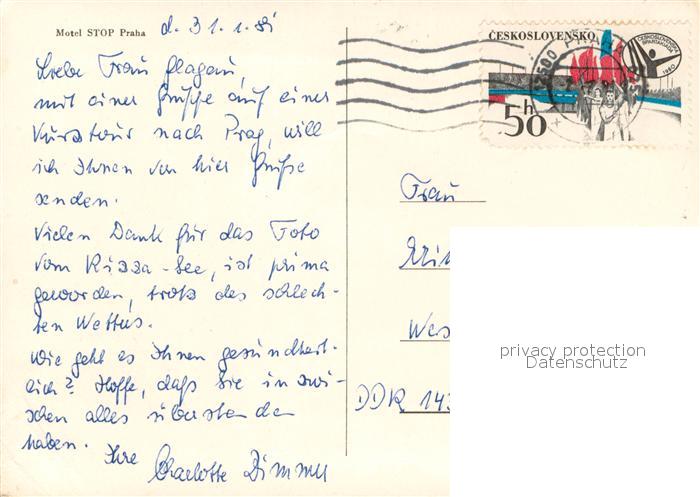 Motel STOP Praha
d. 31.1.81
Liebe Frau Glagau,
mit einer Gruppe auf einer
Kurztour nach Prag, will
ich Ihnen von hier Grüße
senden.
Vielen Dank für das Foto
vom Rizza-See, ist prima
geworden, trotz des schlech-
ten Wetters.
Wie geht es Ihnen gesundheit-
lich? Hoffe, daß Sie inzwi-
schen alles überstanden
haben.
Ihre
Charlotte Dimmer
ČESKOSLOVENSKO
ČESKOSLOVENSKÁ
SPARTAKIÁDA
1980
50 h
PRAHA
Frau
DDR 143
privacy protection
Datenschutz